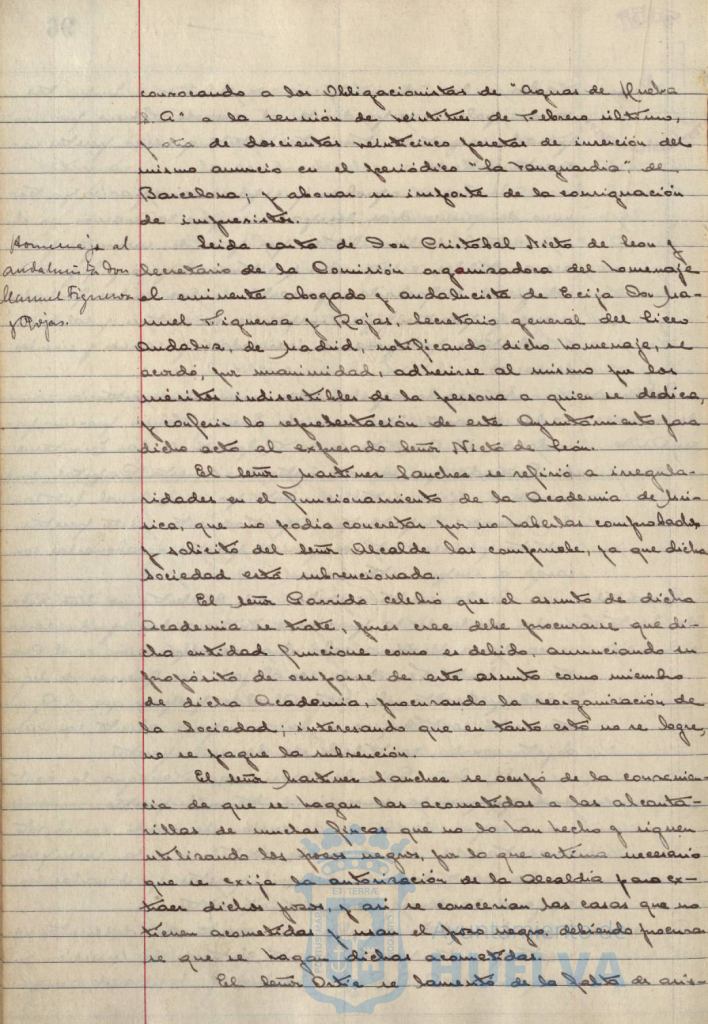 convocando a los Obligacionistas de "Aguas de Huelva
S. A" a la reunión de veintitres de Febrero último,
y otra de doscientas veinticinco pesetas de inserción del
mismo anuncio en el periódico "La Vanguardia", de
Barcelona; y abonar su importe de la consignación
de imprevistos.
Homenaje al
andalucista Don
Manuel Figueroa
y Rojas.
Leida carta de Don Cristóbal Nieto de León y
Secretario de la Comisión organizadora del homenaje
al eminente abogado y andalucista de Ecija Don Ma-
nuel Figueroa y Rojas, Secretario general del Liceo
Andaluz, de Madrid, notificando dicho homenaje, se
acordó, por unanimidad, adherirse al mismo por los
méritos indiscutibles de la persona a quien se dedica,
y conferir la representación de este Ayuntamiento para
dicho acto al expresado Señor Nieto de León.
El Señor Martinez Sanchez se refirió a irregula-
ridades en el funcionamiento de la Academia de Mú-
sica, que no podia concretar por no haberlas comprobado,
y solicitó del Señor Alcalde las compruebe, ya que dicha
Sociedad está subvencionada.
El Señor Garrido celebró que el asunto de dicha
Academia se trate, pues cree debe procurarse que di-
cha entidad funcione como es debido, anunciando su
propósito de ocuparse de este asunto como miembro
de dicha Academia, procurando la reorganización de
la Sociedad; interesando que en tanto esto no se logre,
no se pague la subvención.
El Señor Martinez Sanchez se ocupó de la convenien-
cia de que se hagan las acometidas a las alcanta-
rillas de muchas fincas que no lo han hecho y siguen
utilizando los pozos negros, por lo que estima necesario
que se exija la autorización de la Alcaldia para ex-
traer dichos pozos, y asi se conocerian las casas que no
tienen acometidas y usan el pozo negro, debiendo procurar
se que se hagan dichas acometidas.
HUELVA
El Señor Ortiz se lamentó de la falta de asis-